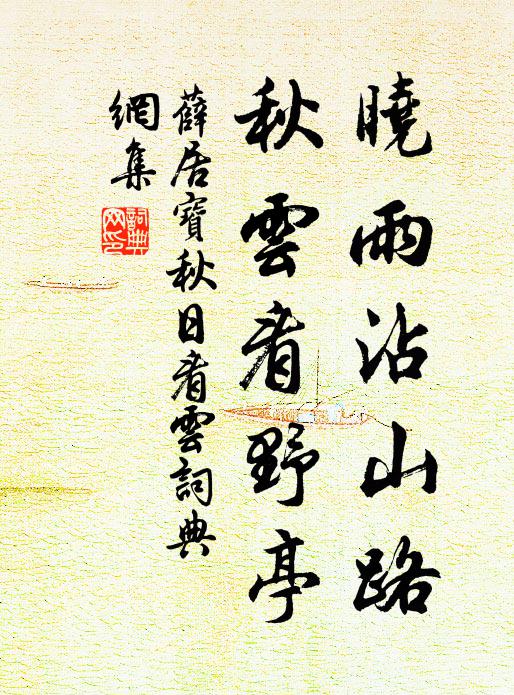 曉雨沾山路
秋雲看野亭
薛居寶秋日看雲詞典
網集
詞典
网印